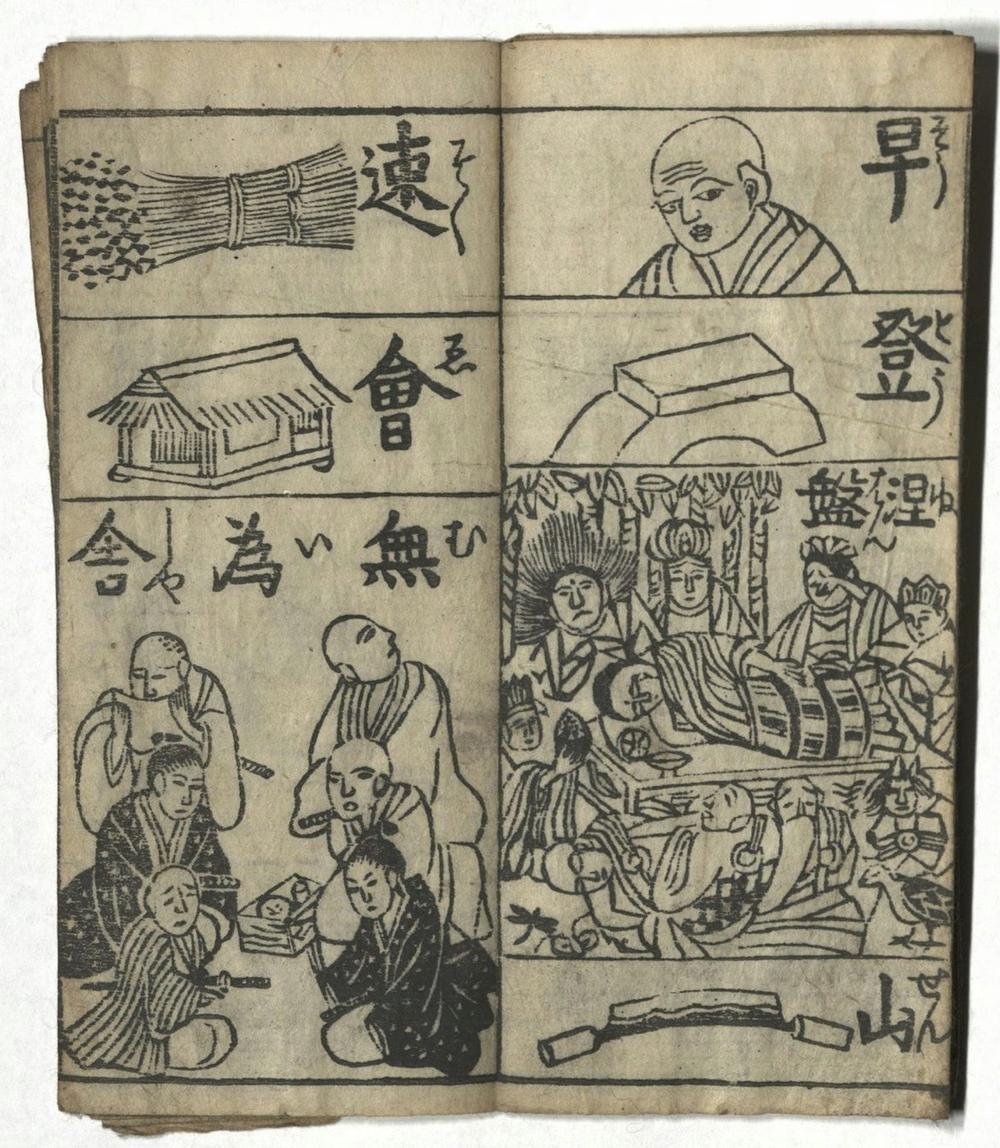 早 そう
登 とう
涅 ね 盤 はん
山 せん
速 そく
會 ゑ
無 む 為 い 舎 しや